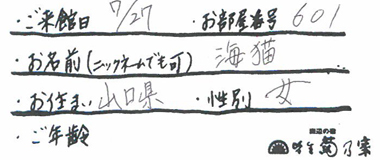 ・ご来館日 7/27 ・お部屋番号 601
・お名前(ニックネームでも可) 海猫
・お住まい 山口県 ・性別 女
・ご年齢
渡辺の宿